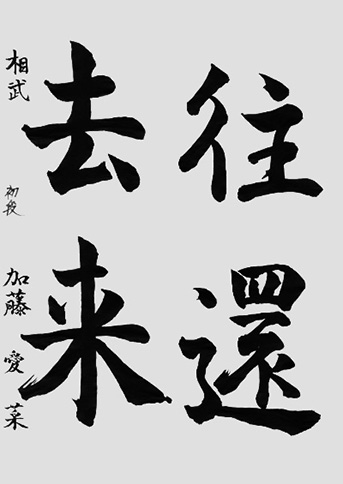 往還
去来
相武 初段 加藤愛菜